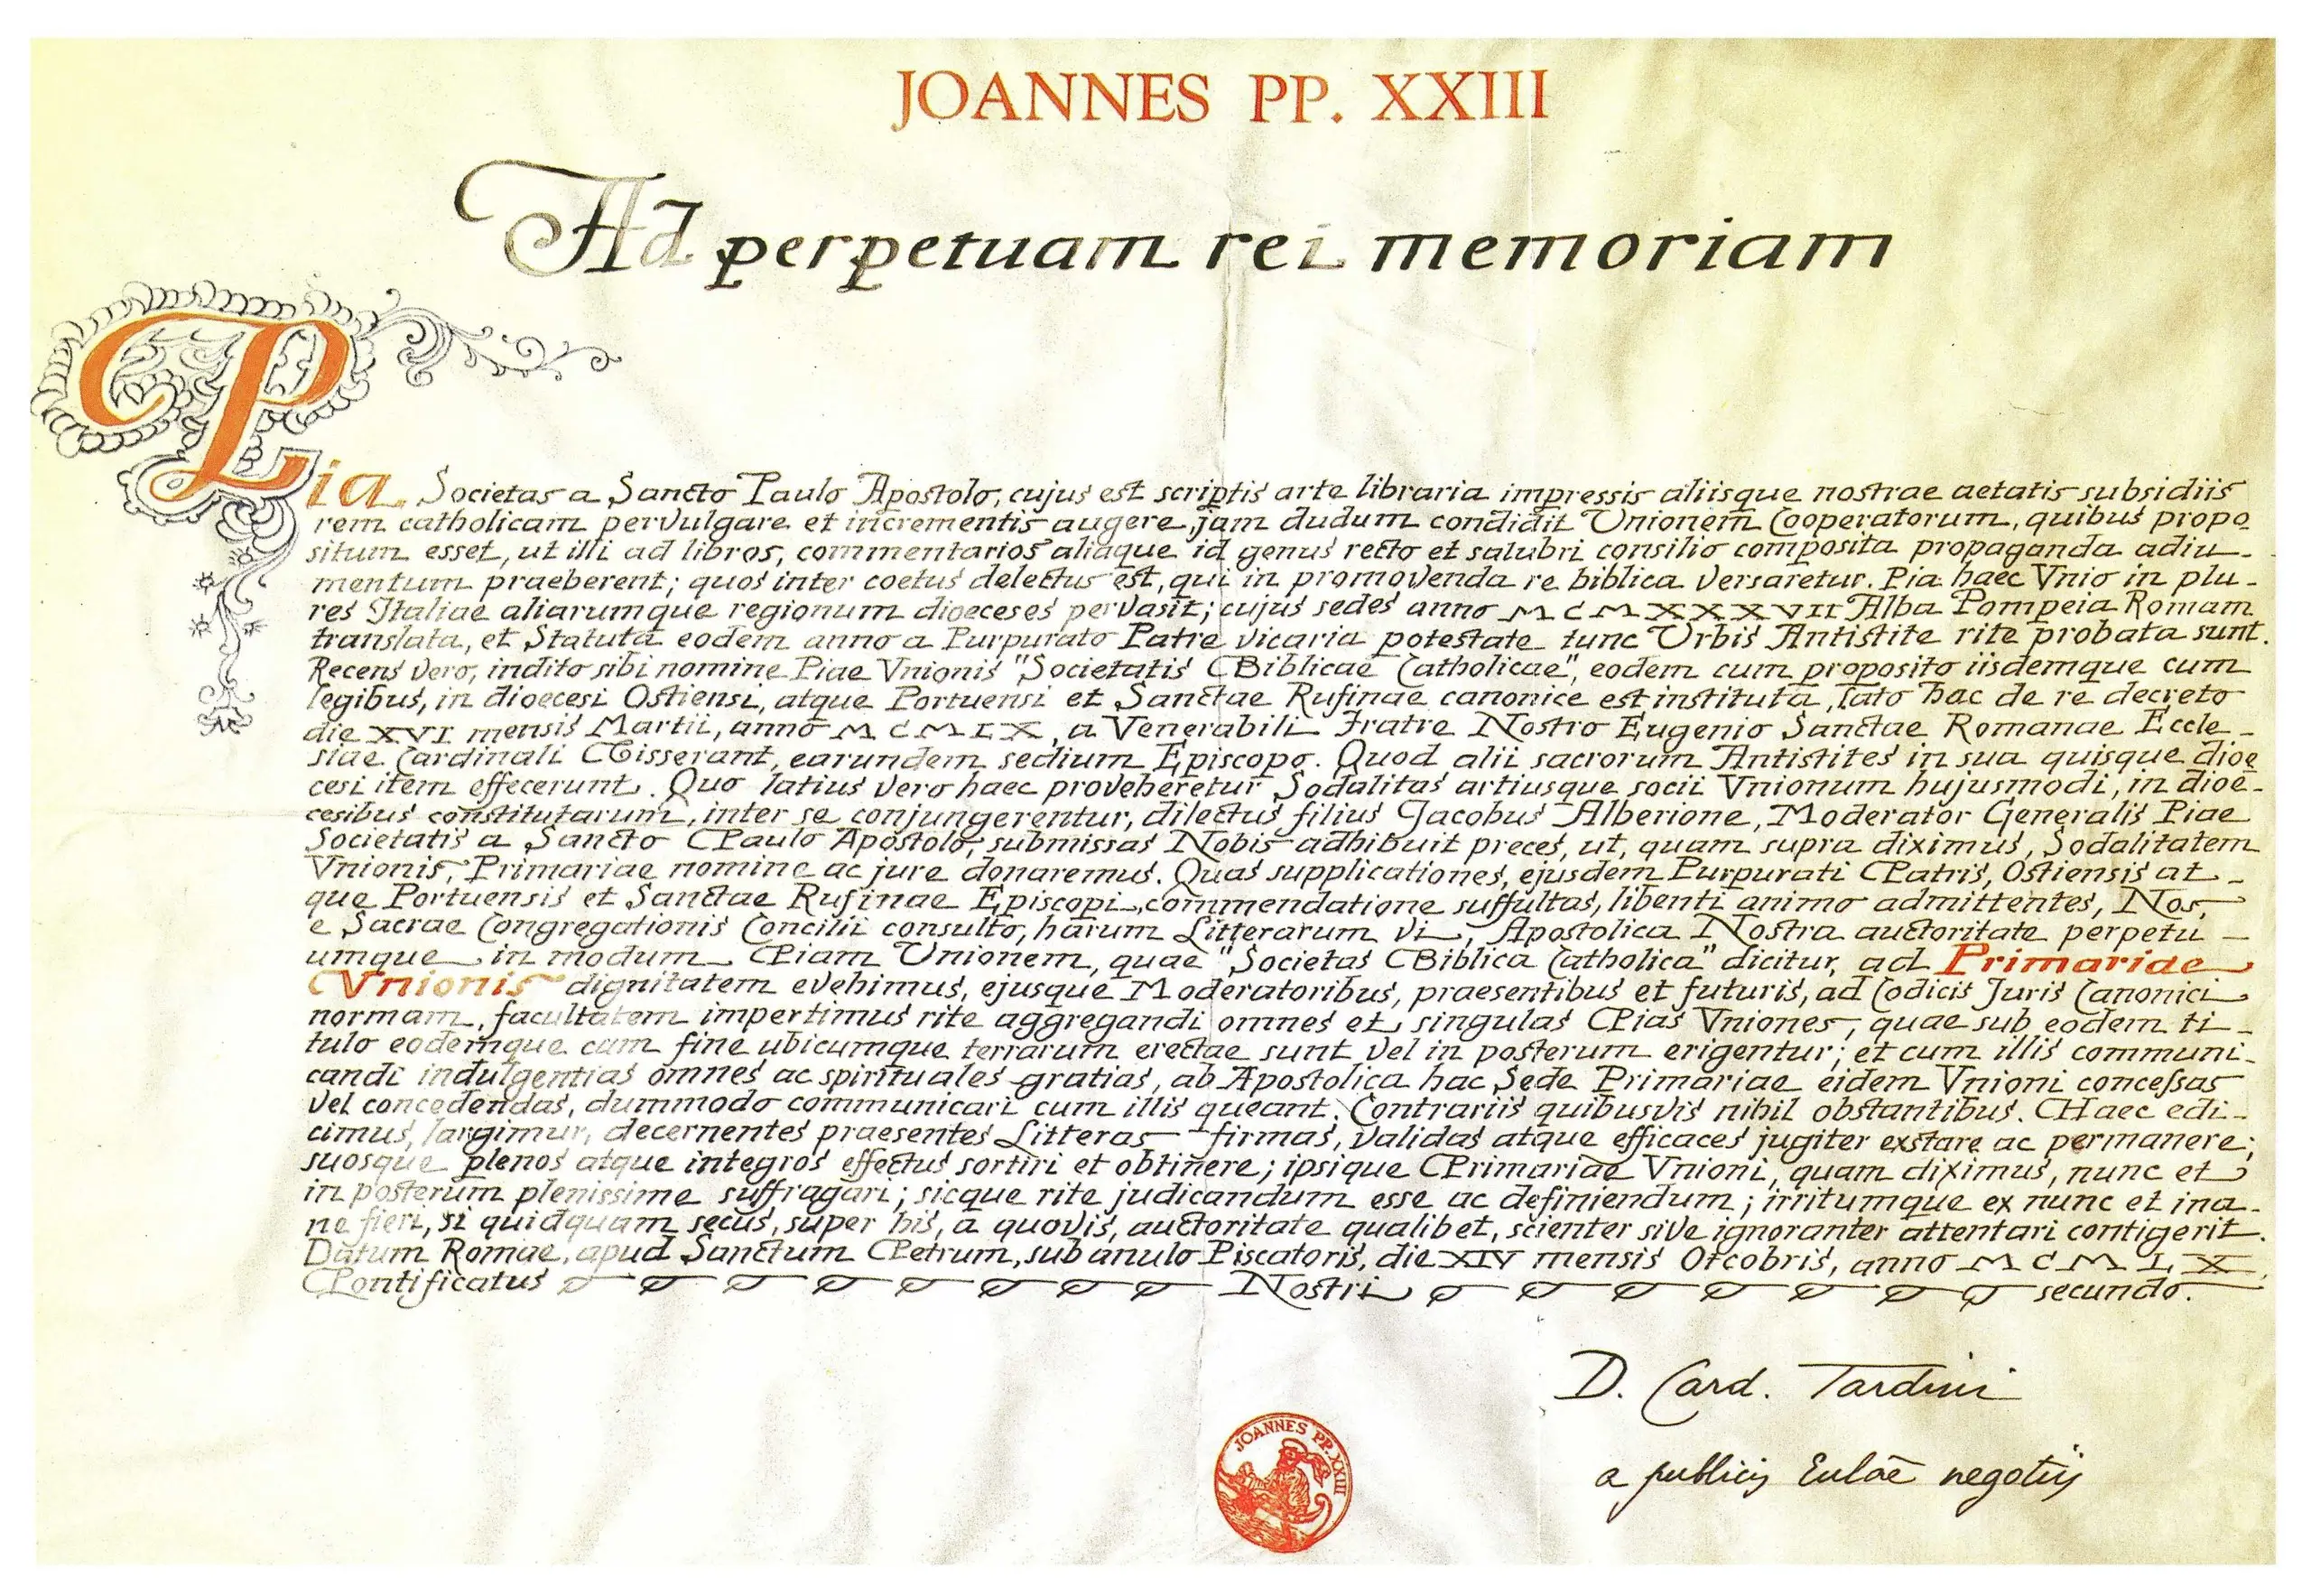 JOANNES PP. XXIII
Ad perpetuam rei memoriam
Pia Societas a Sancto Paulo Apostolo, cujus est scriptis arte libraria impressis aliisque nostrae aetatis subsidiis
rem catholicam pervulgare et incrementis augere, jam dudum condidit Unionem Cooperatorum, quibus propo
situm esset, ut illi ad libros, commentarios aliaque id genus recto et salubri consilio composita propaganda adiu-
mentum praeberent; quos inter coetus delectus est, qui in promovenda re biblica versaretur. Pia haec Vnio in plu-
res Italiae aliarumque regionum dioeceses pervasit; cujus sedes anno MCMXXXVII Alba Pompeia Romam
translata, et Statuta eodem anno a Purpurato Patre vicaria potestate tunc Urbis Antistite rite probata sunt.
Recens vero, indito sibi nomine Piae Vnionis "Societatis Biblicae Catholicae", eodem cum proposito iisdemque cum
legibus, in dioecesi Ostiensi, atque Portuensi et Sanctae Rufinae canonice est instituta, lato hac de re decreto
die XVI mensis Martii, anno MCMLX, a Venerabili Fratre Nostro Eugenio Sanctae Romanae Eccle-
siae Cardinali Tisserant, earundem sedium Episcopo. Quod alii sacrorum Antistites in sua quisque dioe
cesi item effecerunt. Quo latius vero haec proveheretur Sodalitas artiusque socii Vnionum hujusmodi, in dioe-
cesibus constitutarum, inter se conjungerentur, dilectus filius Jacobus Alberione, Moderator Generalis Piae
Societatis a Sancto Paulo Apostolo, submissas Nobis adhibuit preces, ut, quam supra diximus, Sodalitatem
Vnionis, Primariae nomine ac jure donaremus. Quas supplicationes, ejusdem Purpurati Patris, Ostiensis at-
que Portuensis et Sanctae Rufinae Episcopi, commendatione suffultas, libenti animo admittentes, Nos,
e Sacrae Congregationis Concilii consulto, harum Litterarum vi, Apostolica Nostra auctoritate perpetu-
umque in modum Piam Unionem, quae "Societas Biblica Catholica" dicitur, ad Primariae
Vnionis dignitatem evehimus, ejusque Moderatoribus, praesentibus et futuris, ad Codicis Juris Canonici
normam, facultatem impertimus rite aggregandi omnes et singulas Pias Vniones, quae sub eodem ti-
tulo eodemque cum fine ubicumque terrarum erectae sunt vel in posterum erigentur; et cum illis communi-
candi indulgentias omnes ac spirituales gratias, ab Apostolica hac Sede Primariae eidem Vnioni concessas
vel concedendas, dummodo communicari cum illis queant. Contrariis quibusvis nihil obstantibus. Haec edi-
cimus, largimur, decernentes praesentes Litteras firmas, validas atque efficaces jugiter exstare ac permanere;
suosque plenos atque integros effectus sortiri et obtinere; ipsique Primariae Vnioni, quam diximus, nunc et
in posterum plenissime suffragari; sicque rite judicandum esse ac definiendum; irritumque ex nunc et ina-
ne fieri, si quidquam secus, super his, a quovis, auctoritate qualibet, scienter sive ignoranter attentari contigerit.
Datum Romae, apud Sanctum Petrum, sub anulo Piscatoris, die XIV mensis Octobris, anno MCMLX,
Pontificatus Nostri secundo.
D. Card. Tardini
a publicis Eccl.ae negotiis
JOANNES PP. XXIII